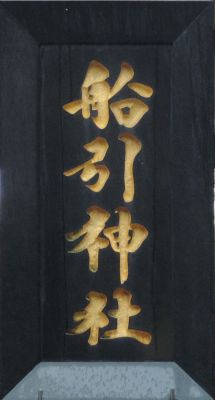 船引神社